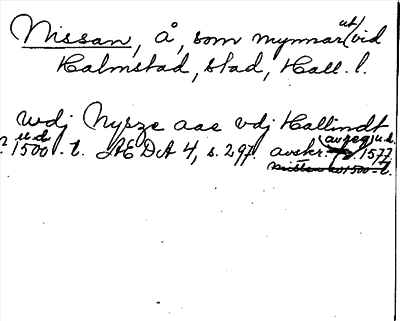 Nissan, å, som mynnar ut vid
Halmstad, stad, Hall. l.
wdj Nysze aae vdj Hallindt
u.d. avreg u.d.
? 1500-t. AEDA 4, s. 297. avskr. 1577